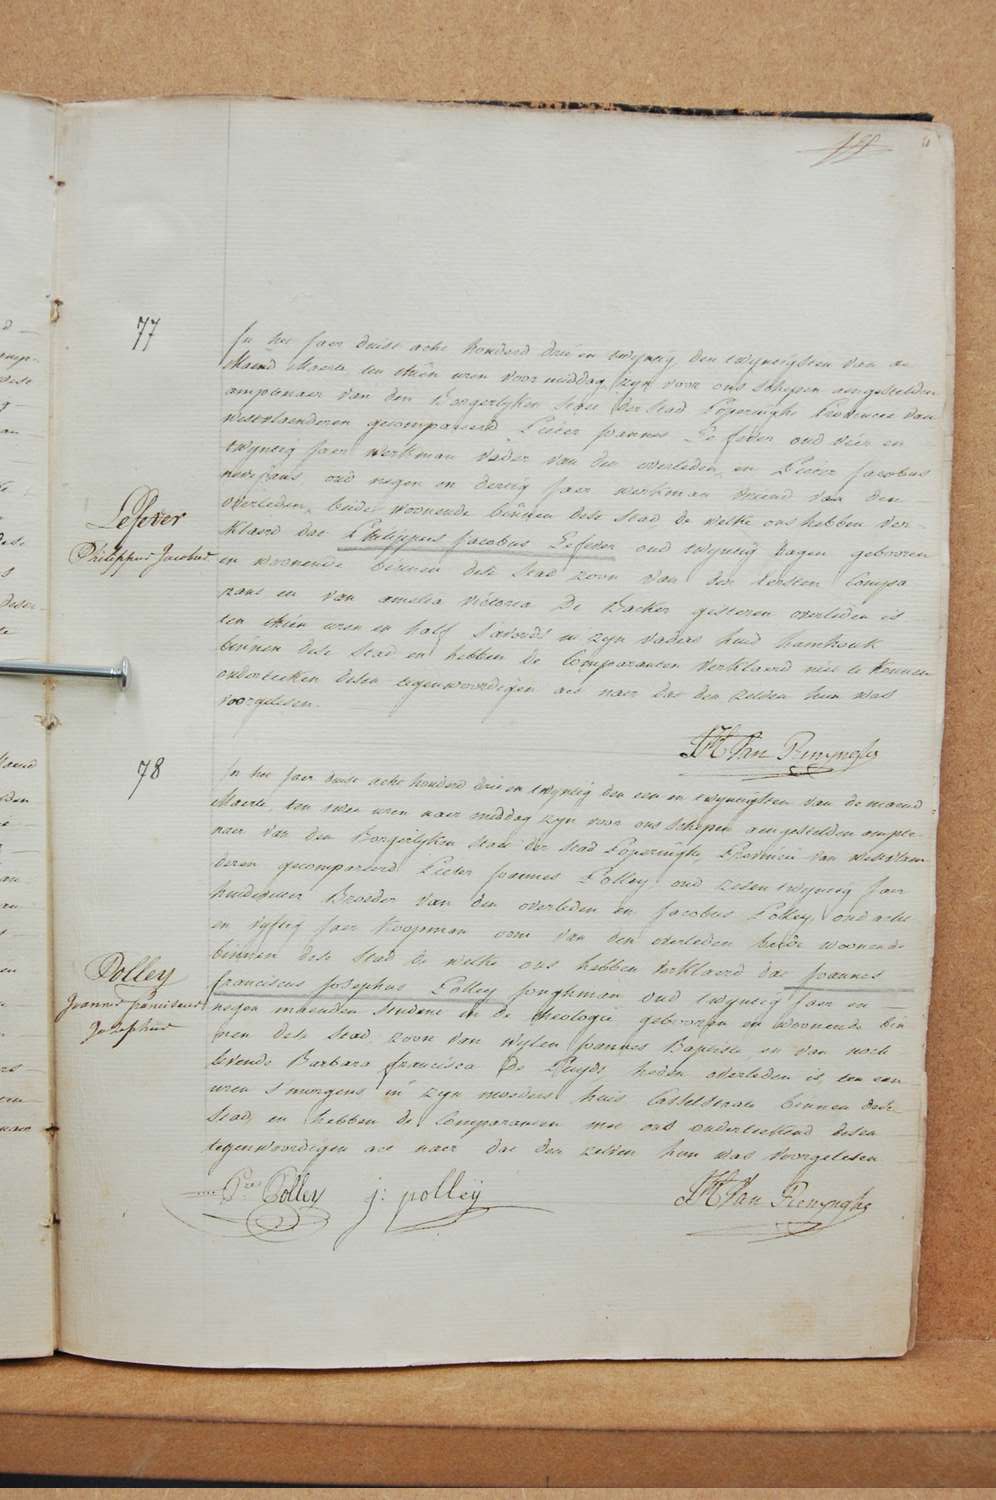 77
In het jaer duist acht honderd drie en twyntig, den twyntigsten van de
Maend Maerte ten thien uren voormiddag zyn voor ons schepen aengestelden
amptenaer van den Borgerlyken staet der stad Poperinghe Provincie van
Westvlaenderen gecompareerd Pieter joannes Lefever oud vier en
twyntig jaer werkman vader van den overleden en Pieter jacobus
oud negen en dertig jaer werkman vriend van den
overleden, beide woonende binnen dese stad de welke ons hebben ver-
klaerd dat Philippus jacobus Lefever oud twyntig dagen gebooren
en woonende binnen dese stad zoon van den eersten Compa
rant en van amelia victoria De Backer gisteren overleden is
ten thien uren en half s'avonds in zyn vaders huis hamhouk
binnen dese stad en hebben de Comparanten verklaerd niet te konnen
onderteeken desen tegenwoordigen act naer dat den zelven hun was
voorgelesen.
Lefever
Philippus Jacobus
Van Renynghe
78
In het jaer duist acht honderd drie en twyntig den een en twyntigsten van de maend
Maerte, ten twee uren naer middag zyn voor ons schepen aengestelden ampte-
naer van den Borgerlyken staet der stad Poperinghe, Provincie van westvlaen
deren gecompareerd Pieter joannes Polley oud zeven twyntig jaer
huidevetter Broeder van den overleden en jacobus Polley, oud acht
en vyftig jaer koopman oom van den overleden beide woonende
binnen dese stad de welke ons hebben verklaerd dat joannes
franciscus josephus Polley jonghman oud twyntig jaer en
negen maenden student in de theologie gebooren en woonende bin
nen dese stad, zoon van wylen joannes Baptiste en van noch
levende Barbara francisca De Ruyds heden overleden is, ten een
uren s'morgens in zyn moeders huis Casselstraete binnen dese
stad, en hebben de Comparanten met ons onderteekend desen
tegenwoordigen act naer dat den zelven hun was voorgelesen
Polley
Joannes franciscus
Josephus
Polley j: polley Van Renynghe